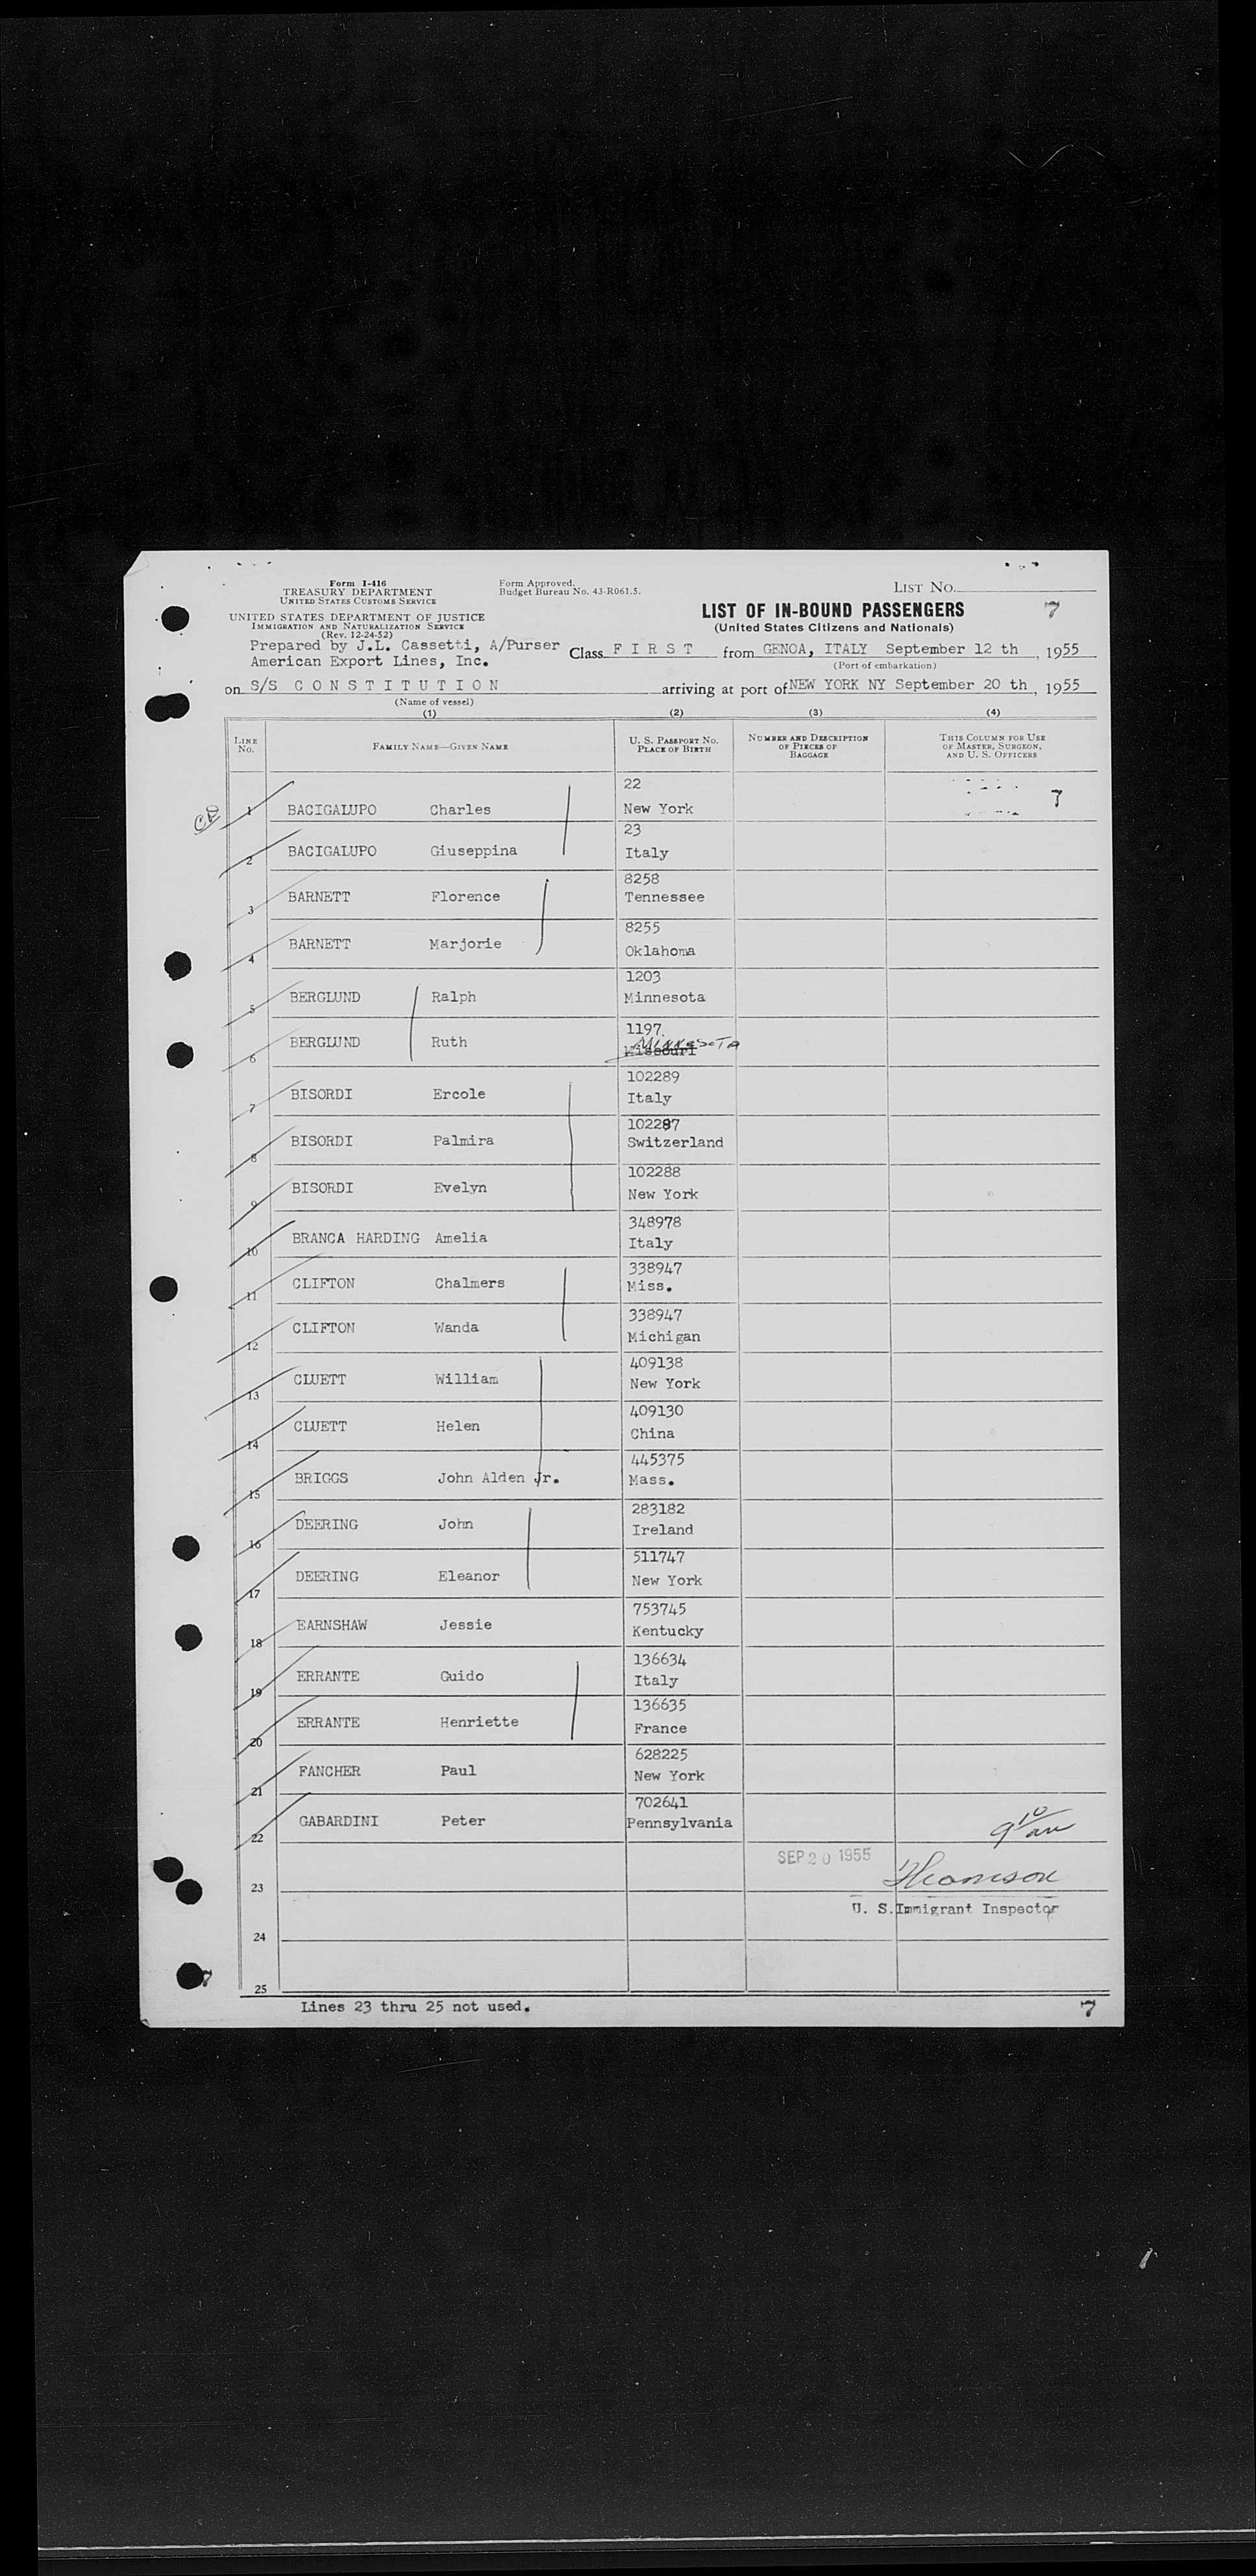 Form I-416
TREASURY DEPARTMENT
UNITED STATES CUSTOMS SERVICE
UNITED STATES DEPARTMENT OF JUSTICE
IMMIGRATION AND NATURALIZATION SERVICE
(Rev. 12-24-52)
Form Approved.
Budget Bureau No. 43-R061.5.
LIST NO.
LIST OF IN-BOUND PASSENGERS 7
(United States Citizens and Nationals)
Prepared by J.L. Cassetti, A/Purser
American Export Lines, Inc.
Class F I R S T from GENOA, ITALY September 12 th, 1955
(Port of embarkation)
on S/S C O N S T I T U T I O N arriving at port of NEW YORK NY September 20 th, 1955
(Name of vessel)
(1) (2) (3) (4)
LINE NO. FAMILY NAME—GIVEN NAME U. S. PASSPORT NO. PLACE OF BIRTH NUMBER AND DESCRIPTION OF PIECES OF BAGGAGE THIS COLUMN FOR USE OF MASTER, SURGEON, AND U. S. OFFICERS
22
1 BACIGALUPO Charles New York 7
23
2 BACIGALUPO Giuseppina Italy
8258
3 BARNETT Florence Tennessee
8255
4 BARNETT Marjorie Oklahoma
1203
5 BERGLUND Ralph Minnesota
1197
6 BERGLUND Ruth Missouri Minnesota
102289
7 BISORDI Ercole Italy
102287
8 BISORDI Palmira Switzerland
102288
9 BISORDI Evelyn New York
348978
10 BRANCA HARDING Amelia Italy
338947
11 CLIFTON Chalmers Miss.
338947
12 CLIFTON Wanda Michigan
409138
13 CLUETT William New York
409130
14 CLUETT Helen China
445375
15 BRIGGS John Alden Jr. Mass.
283182
16 DEERING John Ireland
511747
17 DEERING Eleanor New York
753745
18 EARNSHAW Jessie Kentucky
136634
19 ERRANTE Guido Italy
136635
20 ERRANTE Henriette France
628225
21 FANCHER Paul New York
702641
22 GABARDINI Peter Pennsylvania
9 10 am
SEP 20 1955
23
U. S. Immigrant Inspector
24
25
7
Lines 23 thru 25 not used. 7